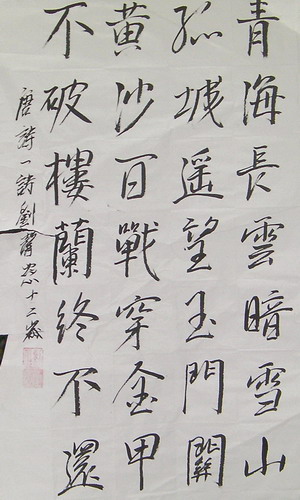 青海長雲暗雪山
孤城遥望玉門關
黃沙百戰穿金甲
不破樓蘭終不還
唐詩一首劉
十二歲